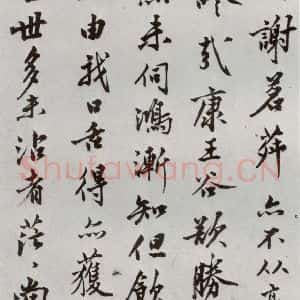 謝茗亦不从
哉康王谷歎勝
未伺鴻漸知但飲
由我口舌得亦獲
世多未沾者茫々尚
Shufawang.CN